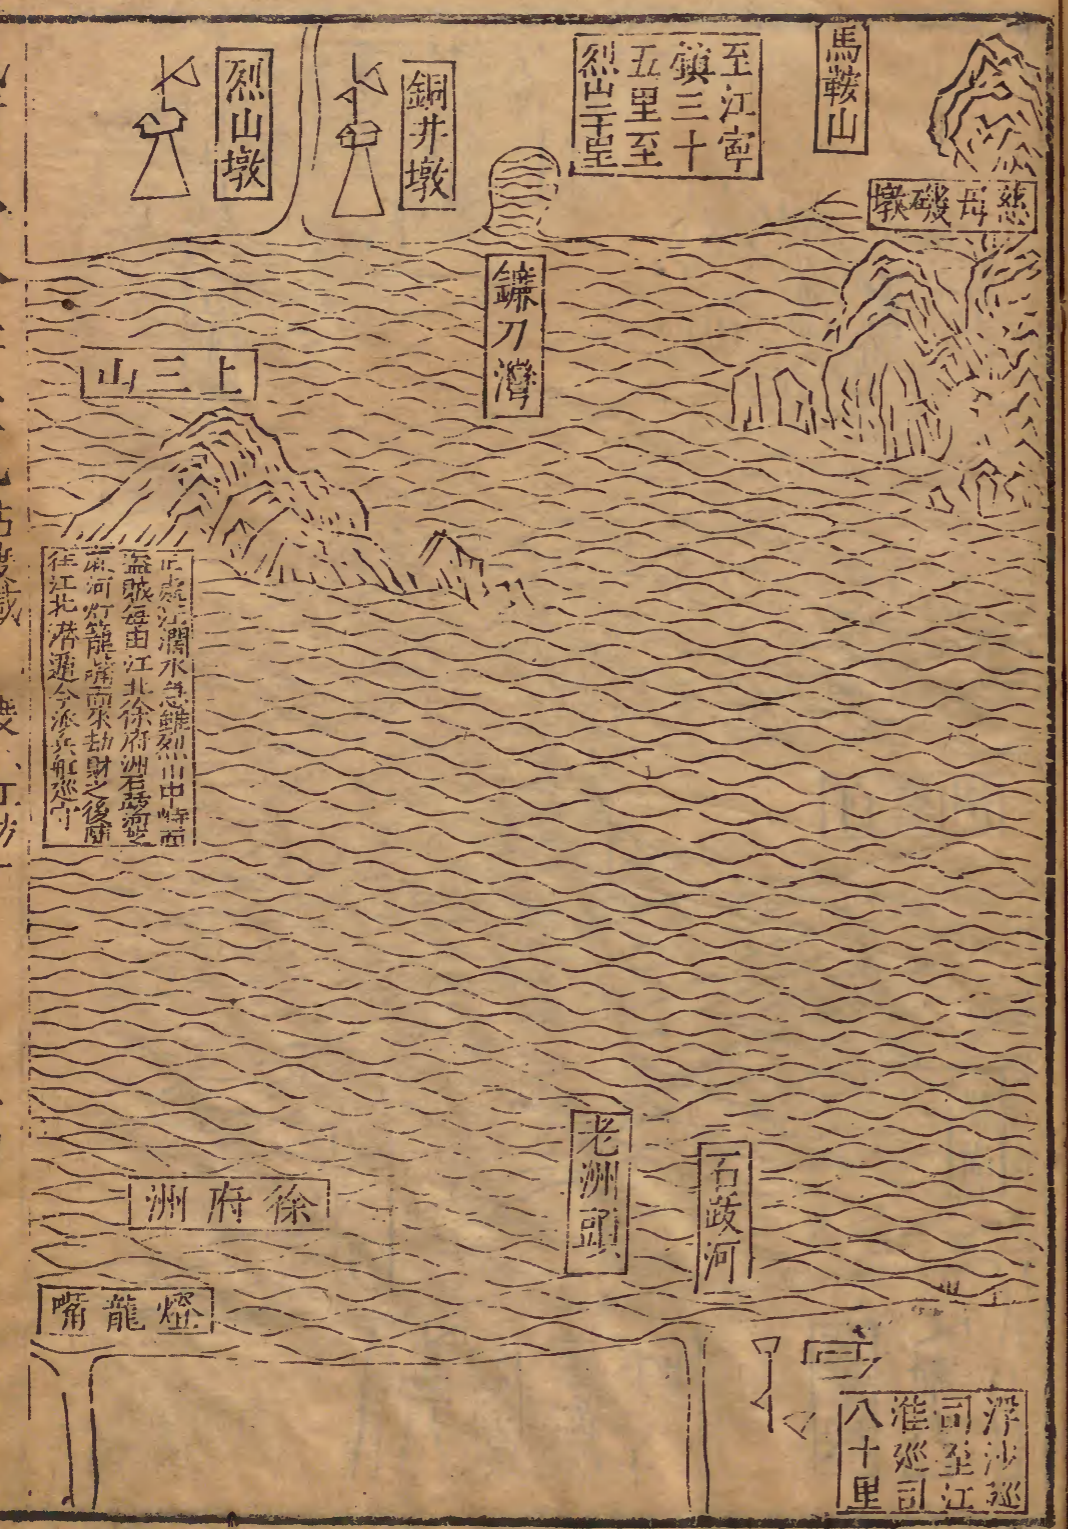 馬鞍山
慈母磯墩
至江寧
鎮三十
五里至
烈山二十里
銅井墩
烈山墩
鐮刀灣
上三山
江濶水急雖烈山中峙而
盜賊每由江北徐府洲石跋河芝
河灯籠嘴而來劫財之後
往江北潛遁今派兵船廵守
老洲頭
石跋河
徐府洲
燈龍嘴
浮沙廵
司至江
淮廵司
八十里